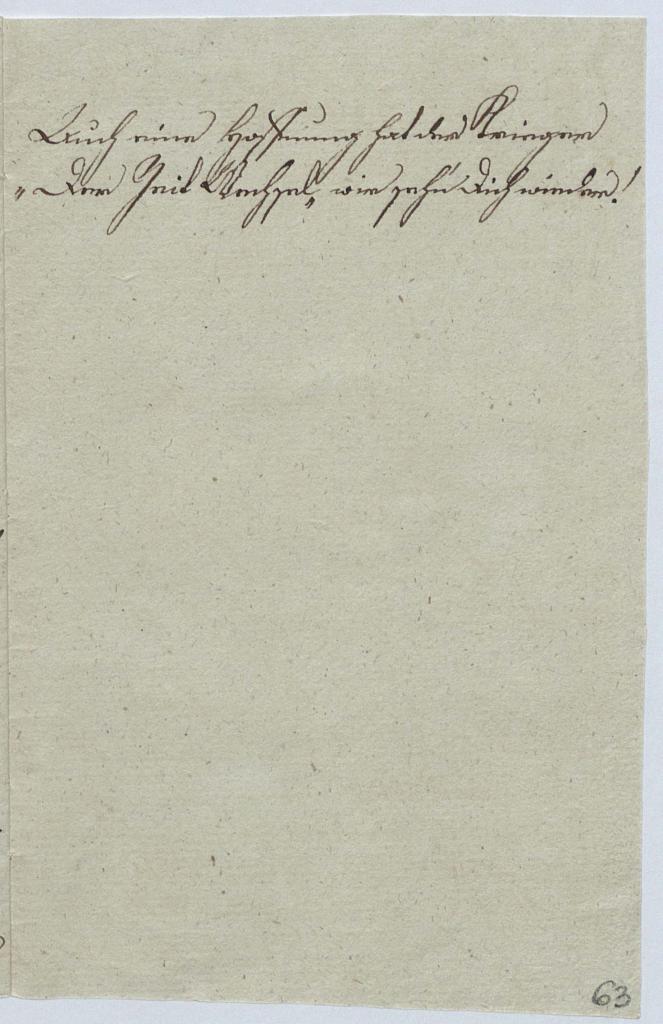 Auch eine Hoffnung hat der Krieger
„Der Zeit Wechsel„ wir sehn' dich wieder!
63